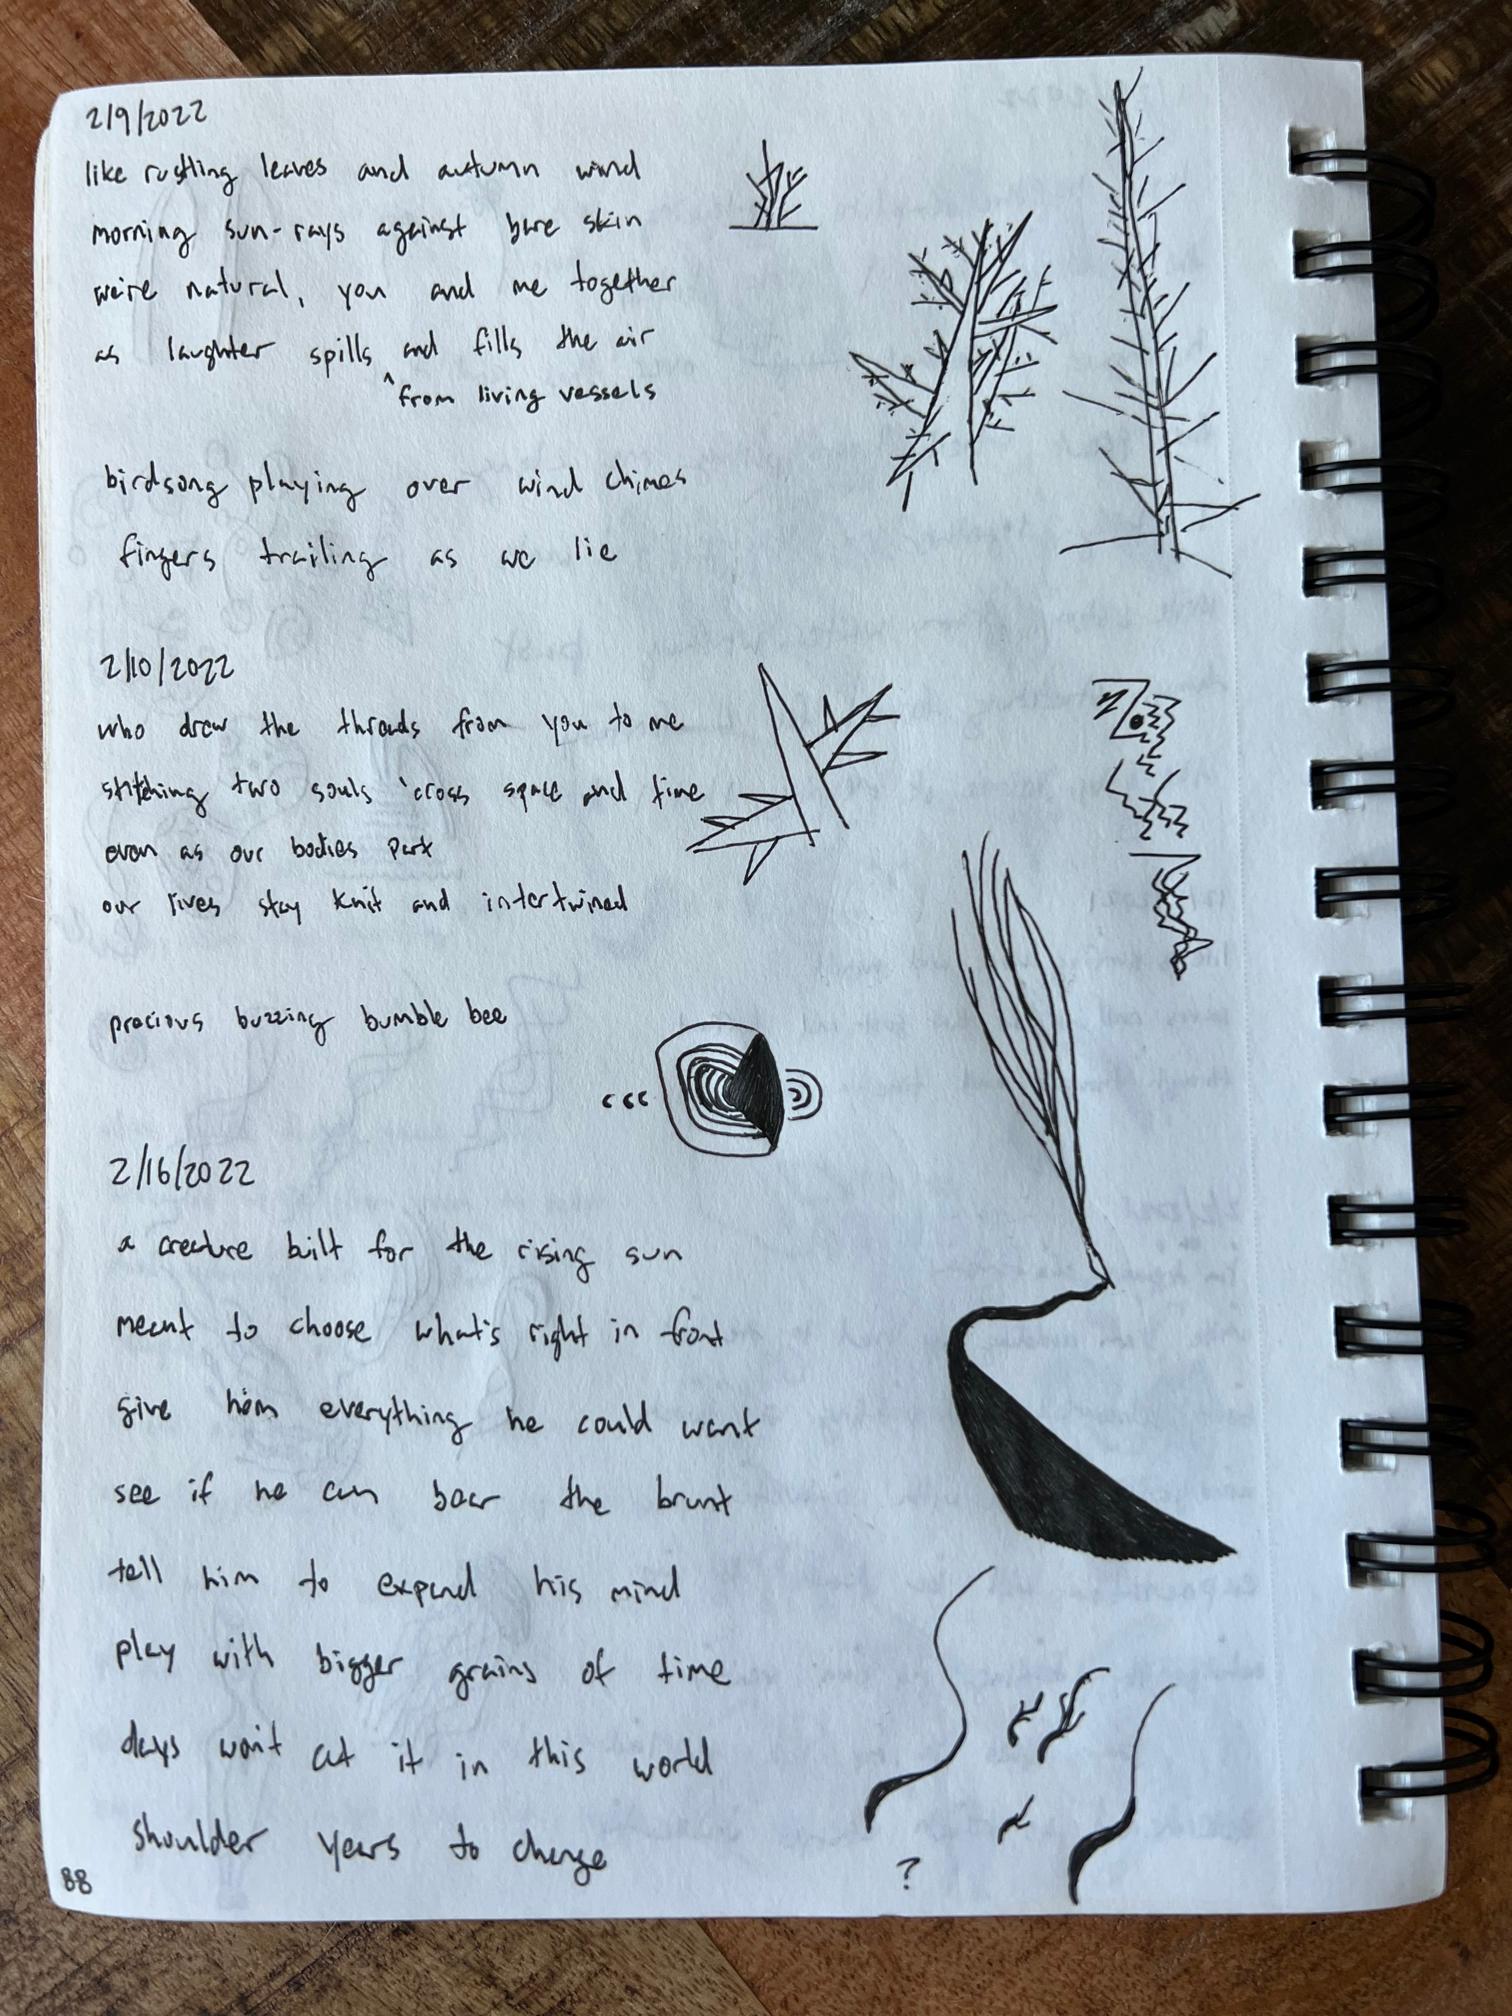 2/9/2022
like rustling leaves and autumn wind
morning sun-rays against bare skin
we're natural, you and me together
as laughter spills ^ and fills the air
from living vessels
birdsong playing over wind chimes
fingers trailing as we lie
2/10/2022
who drew the threads from you to me
stitching two souls 'cross space and time
even as our bodies part
our lives stay knit and intertwined
precious buzzing bumble bee
2/16/2022
a creature built for the rising sun
meant to choose what's right in front
give him everything he could want
see if he can bear the brunt
tell him to expand his mind
play with bigger grains of time
days won't cut it in this world
shoulder years to change
?
88